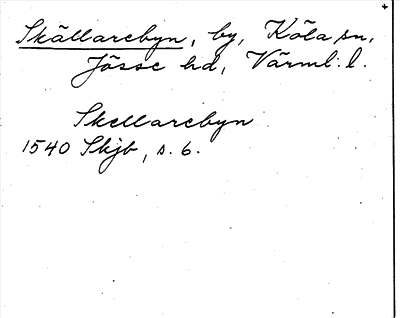 Skällarebyn, by, Köla sn,
Jösse hd, Värml. l.
Skellarebyn
1540 Skjb, s. 6.